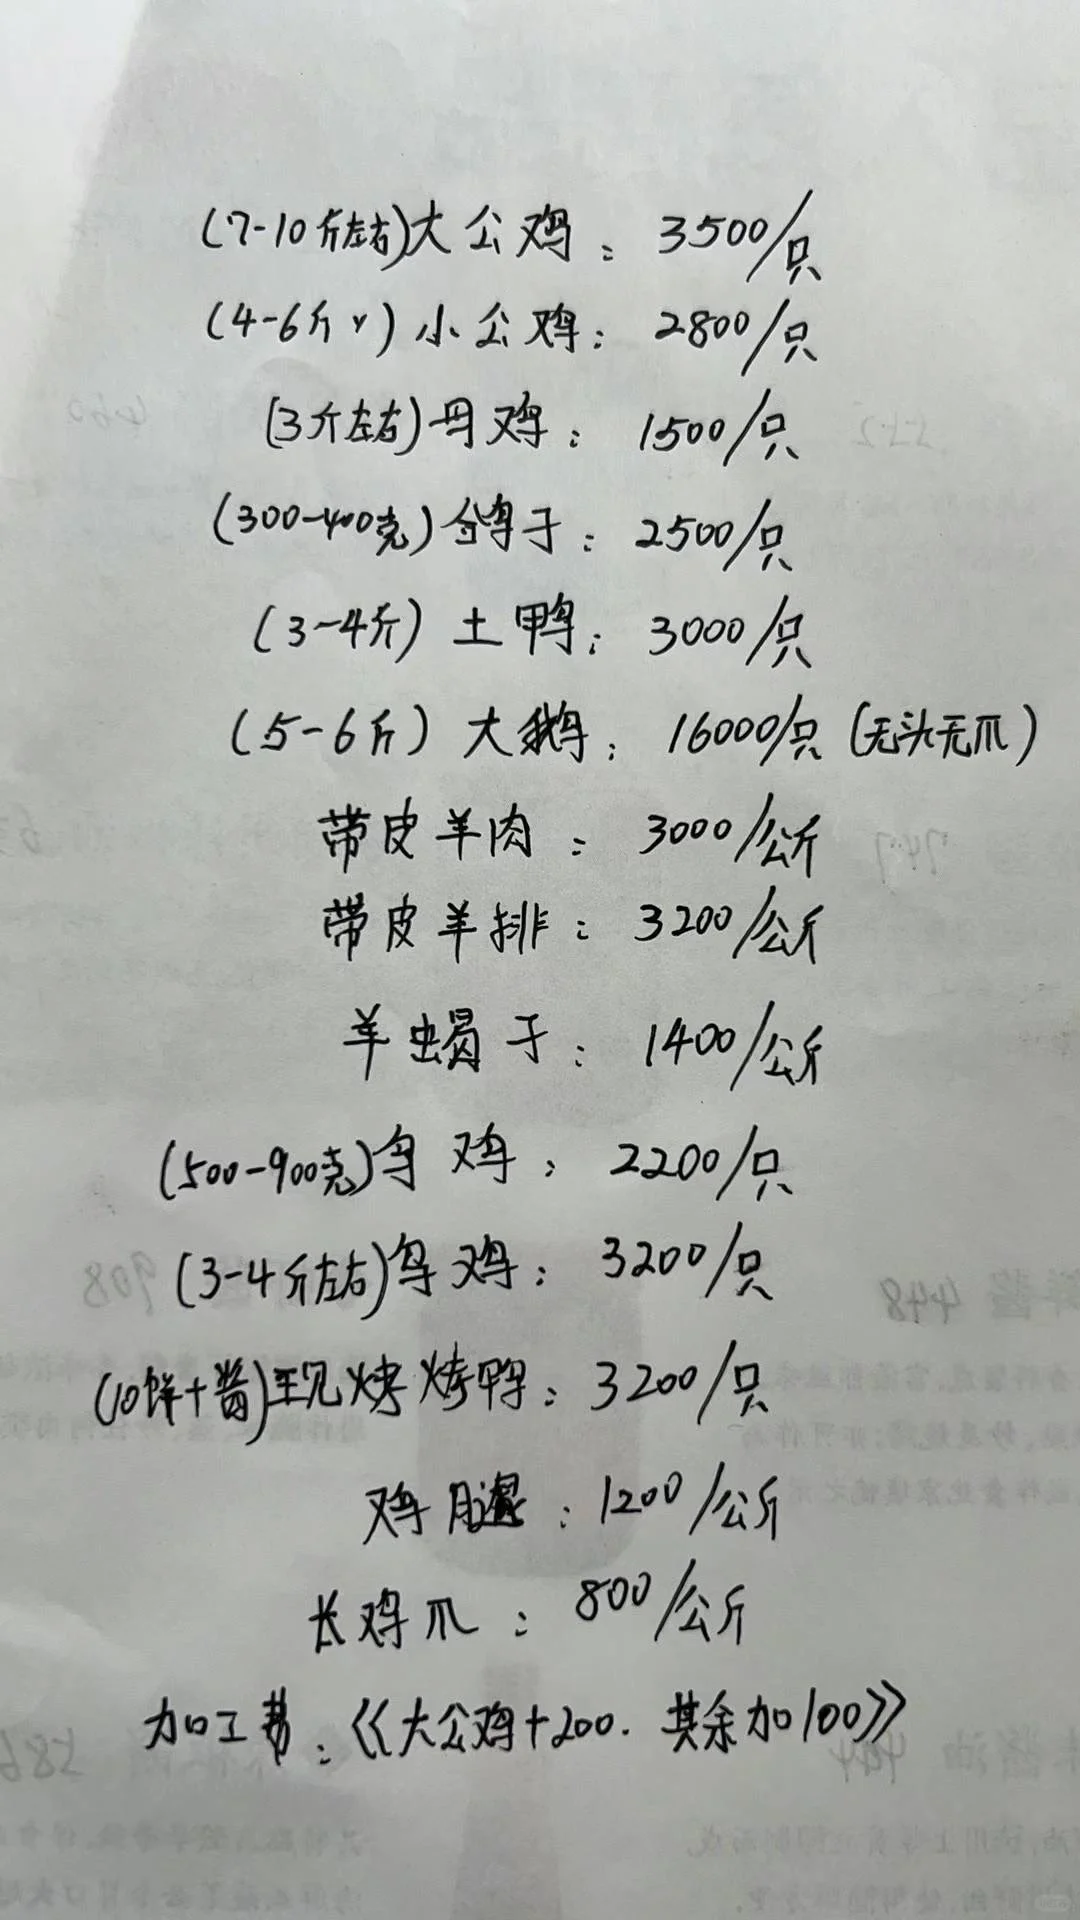 (7-10斤左右)大公鸡：3500/只
(4-6斤〃)小公鸡：2800/只
(3斤左右)母鸡：1500/只
(300-400克)鸽子：2500/只
(3-4斤)土鸭：3000/只
(5-6斤)大鹅：16000/只(无头无爪)
带皮羊肉：3000/公斤
带皮羊排：3200/公斤
羊蝎子：1400/公斤
(500-900克)乌鸡：2200/只
(3-4斤左右)乌鸡：3200/只
(10饼+酱)现烤烤鸭：3200/只
鸡腿：1200/公斤
长鸡爪：800/公斤
加工费：《大公鸡+200. 其余加100》